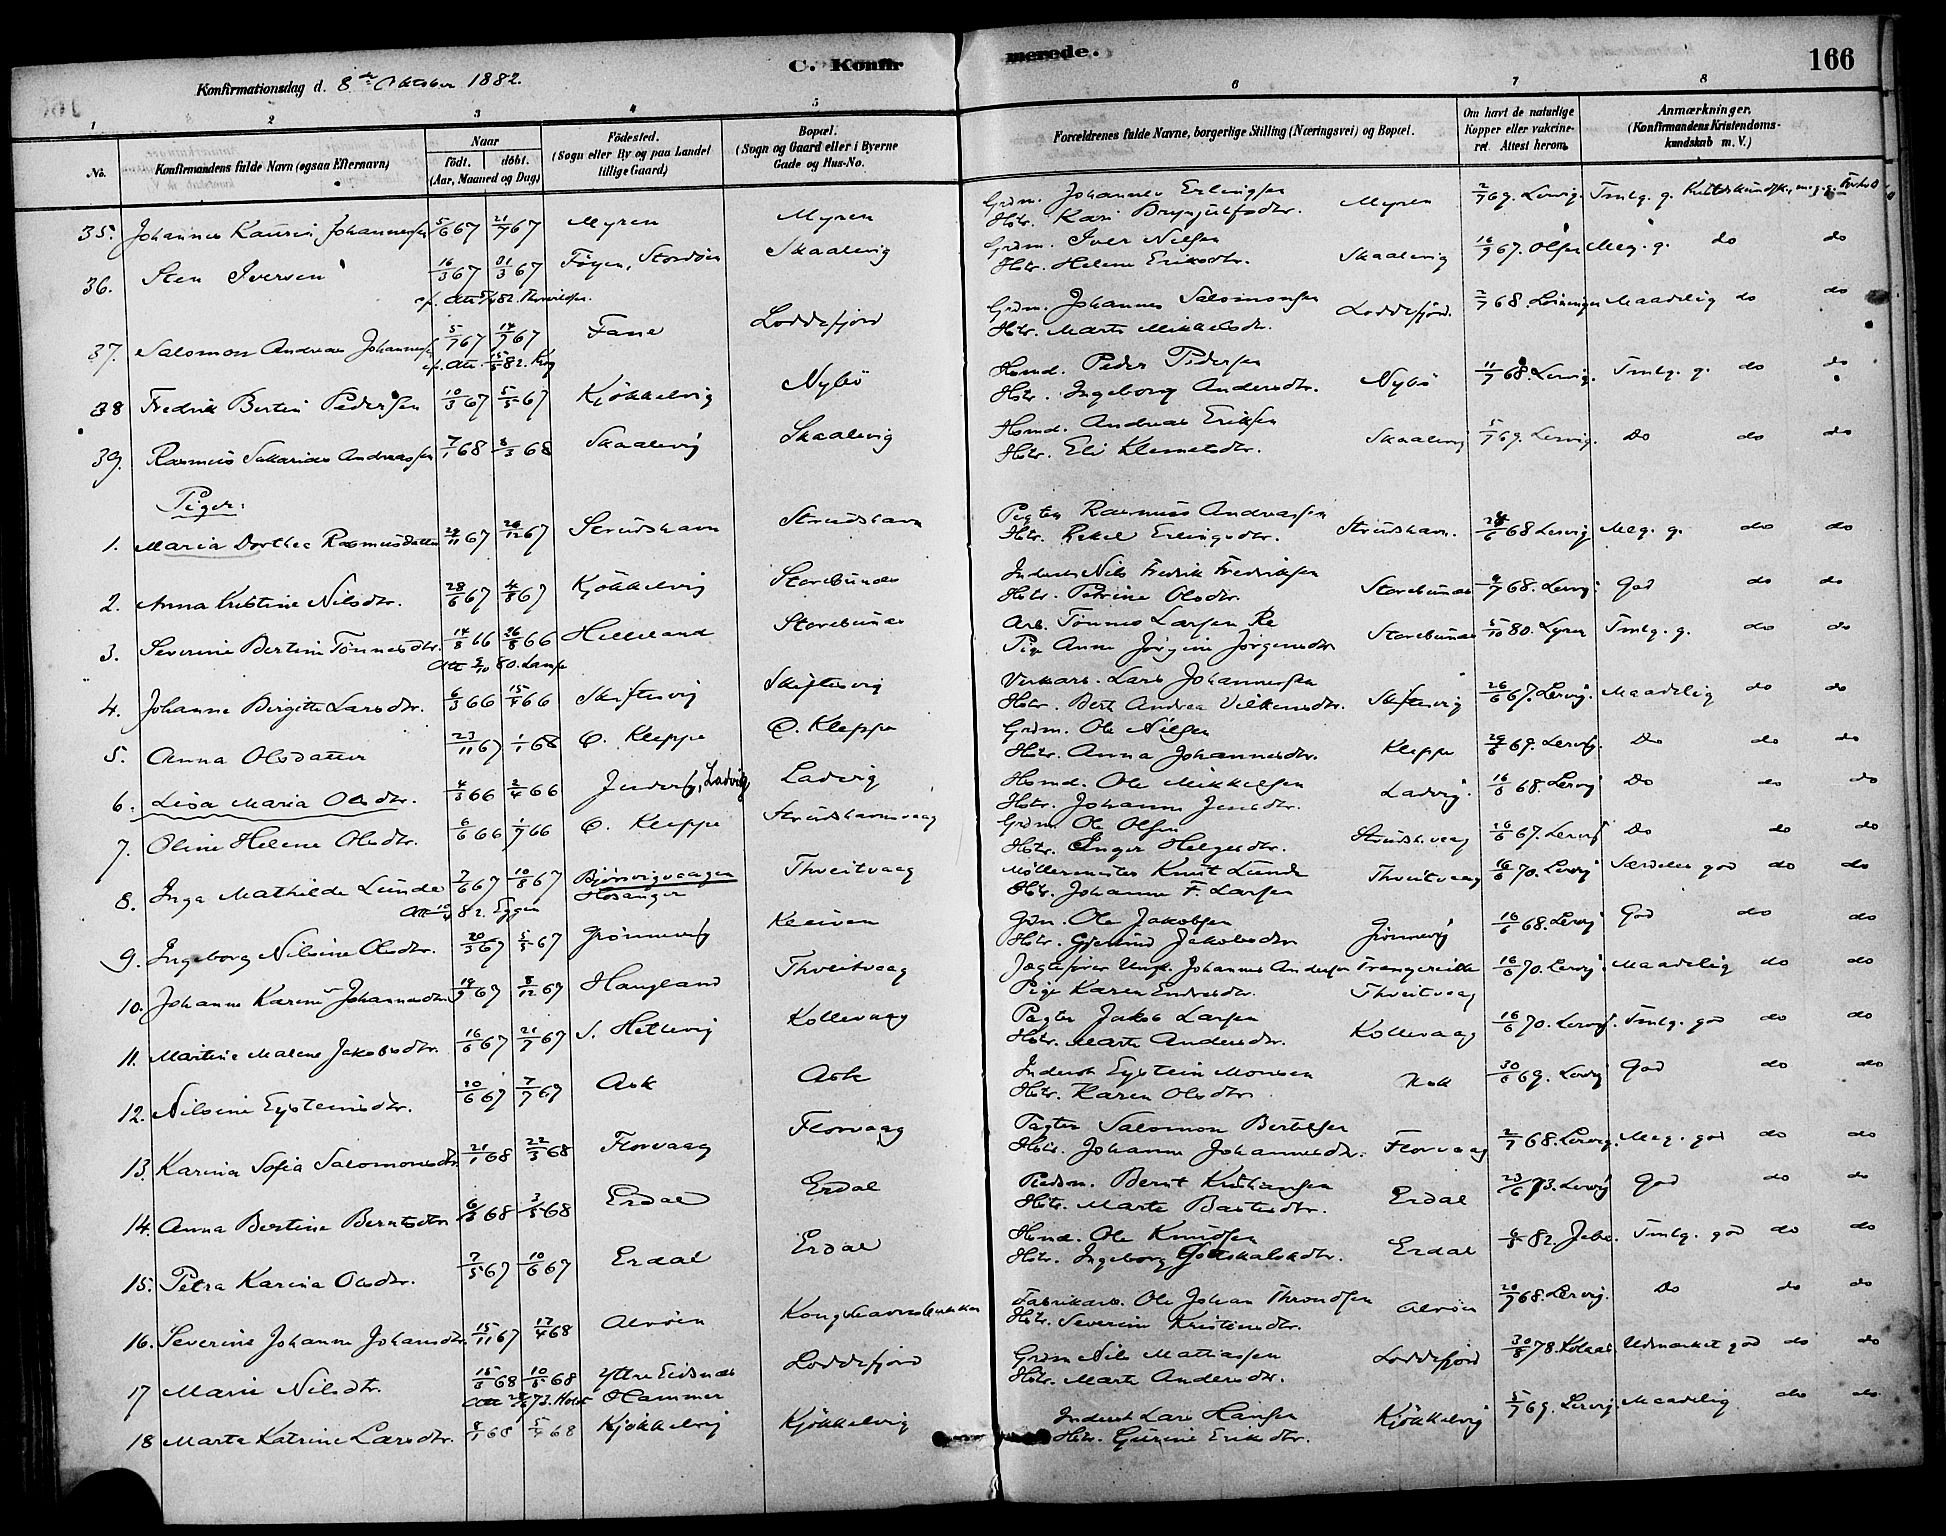 C. Konfirmerede. 166
Konfirmationsdag d. 8de Oktober 1882.
1 2 3 4 5 6 7 8
No. Konfirmandens fulde Navn (ogsaa Efternavn) Naar födt. döbt. (Aar, Maaned og Dag) Födested. (Sogn eller By og paa Landet tillige Gaard) Bopæl. (Sogn og Gaard eller i Byerne Gade og Hus-No. Forældrenes fulde Navne, borgerlige Stilling (Næringsvei) og Bopæl. Om havt de naturlige Kopper eller vakcineret. Attest herom. Anmærkninger. (Konfirmandens Kristendomskundskab m. V.)
35. Johannes Johannesen 5/6 67 21/7 67 Myren Myren Grdm. Johannes Erlingsen Hstr. Kari Brynjulfsdtr. Myren 2/7 69. Lervig. Tmlg. g.
36. Sten Iversen 16/3 67 31/3 67 Föyen, Stordöen Skaalevig Grdm. Iver Nielsen Hstr. Helene Eriksdtr. Skaalevig 16/9 67. Olsen Meg. g. do do
37. Salomon Andreas Johannesen 5/7 67 14/7 67 Fane Loddefjord Grdm. Johannes Salomonsen Hstr. Marte Mikkelsdtr. Loddefjord. 2/7 68. Maadelig do do
38 Fredrik Bertin Pedersen 10/3 67 5/5 67 Kjökkelvig Nybö Hsmd. Peder Pedersen Hstr. Ingeborg Andersdtr. Nybö 11/7 68. Lervig. Tmlg. g. do do
39. Rasmus Sakarias Andreassen 7/1 68 8/3 68 Skaalevig Skaalevig Hsmd. Andreas Eriksen Hstr. Eli Klemetsdtr. Skaalevig 5/7 69. Lervig. Do do do
Piger:
1. Maria Dorthea Rasmusdatter 24/11 67 26/12 67 Strudshavn Strudshavn Pagter Rasmus Andreassen Hstr. Rakel Erlingsdtr. Strudshavn. 24/6 68 Lervig Meg. g. do do
2. Anna Kristine Nilsdtr. 28/6 67 4/8 67 Kjökkelvig Storebunes Inderst Nils Fredrik Fredriksen Hstr. Petrine Olsdtr. Storebunes 9/7 68. Lervig. God do do
3. Severine Bertine Tönnesdtr. 14/8 66 26/8 66 Helleland Storebunes Arb. Tönnes Larsen Re Pige Anne Jörgine Jörgensdtr. Storebunes 5/10 80. Tmlg. g. do do
4. Johanne Birgitte Larsdtr. 6/3 66 15/4 66 Skiftesvig Skiftesvig Lars Johannessen Hstr. Bert Andrea Vilhelmsdtr. Skiftesvig 26/6 67. Lervig. Maadelig do do
5. Anna Olsdatter 23/11 67 1/1 68 Ö. Kleppe Ö. Kleppe Grdm. Ole Nilsen Hstr. Anna Johannesdtr. Kleppe 29/6 69. Lervig. Do do do
6. Lisa Maria Olsdtr. 4/3 66 2/4 66 Ladvig Ladvig Hsmd. Ole Mikkelsen Hstr. Johanna Jensdtr. Ladvig. 16/6 68. Lervig Do do do
7. Oline Helene Olsdtr. 6/6 66 1/7 66 Ö. Kleppe Strudshavnsvaag Grdm. Ole Olsen Hstr. Inger Helgesdtr. Strudsh.vaag 26/6 67. Lervig Do do do
8. Inga Mathilde Lunde 7/6 67 10/8 67 Bjørsvigvaagen Hosanger Thveitvaag Möllermester Knut Lunde Hstr. Johanne F. Larsen Thveitvaag 16/6 70. Lervig Særdeles god do do
9. Ingeborg Nilsine Olsdtr. 20/3 67 5/5 67 Grönnevig Kleiven Gdm. Ole Jakobsen Hstr. Gjertrud Jakobsdtr Grönnevig 16/6 68. Lervig God do do
10. Johanne Karine Johannesdtr 19/9 67 8/12 67 Haugland Thveitvaag Jægtefører Ungk. Johannes Andersen Trengereide Pige Karen Endresdtr. Thveitvaag 16/6 70. Lervig. Maadelig do do
11. Martine Malene Jakobsdtr. 16/6 67 21/7 67 S. Hetlevig Kollevaag Pagter Jakob Larsen Hstr. Marte Andersdtr. Kollevaag 16/6 70. Lervig. Tmlg. god do do
12. Nilsine Eysteinsdtr. 20/6 67 7/7 67 Ask Ask Inderst Eystein Monsen Hstr. Karen Olsdtr. Ask 30/6 69. Lervig God do do
13. Karina Sofia Salomonsdtr 21/1 68 22/3 68 Florvaag Florvaag Pagter Salomon Bertelsen Hstr. Johanna Johannesdtr. Florvaag 2/7 68. Lervig. Meg. god do do
14. Anna Bertine Berntsdtr 6/3 68 3/5 68 Erdal Erdal Pladsm. Bernt Kristiansen Hstr. Marte Bastesdtr. Erdal 23/6 73. Lervig God do do
15. Petra Karina Olsdtr. 7/5 67 10/6 67 Erdal Erdal Hsmd. Ole Knudsen Hstr. Ingeborg Gotskalksdtr. Erdal 6/5 82. Tmlg. god do do
16. Severine Johanne Johansdtr. 15/11 67 17/4 68 Alvöen Fabrikarb. Ole Johan Throndsen Hstr. Severine Kristensdtr. Alvöen 20/7 68. Lervig. Do do do
17 Marie Nilsdtr. 15/3 68 10/5 68 Ytre Eidsnes Hammer Loddefjord Grdm Nils Mathiassen Hstr. Marte Andersdtr. Loddefjord 30/8 78. Udmærket god do do
18 Marta Katrine Larsdtr. 8/1 68 5/4 68 Kjökkelvig Kjökkelvig Inderst Lars Hansen Hstr. Gurine Eriksdtr. Kjökkelvig 5/7 69. Lervig. Maadelig do do